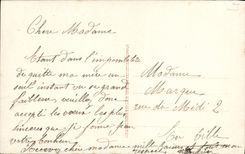 Chère Madame
Etant dans l'impossibilité
de quitter ma mère un
seul instant vu sa grande
faiblesse, veuillez, Dme
accepter les vœux les plus
sincères que je forme pour
votre bonheur
Recevez chère madame mille
Madame
Marque
rue du Midi 2
En Ville